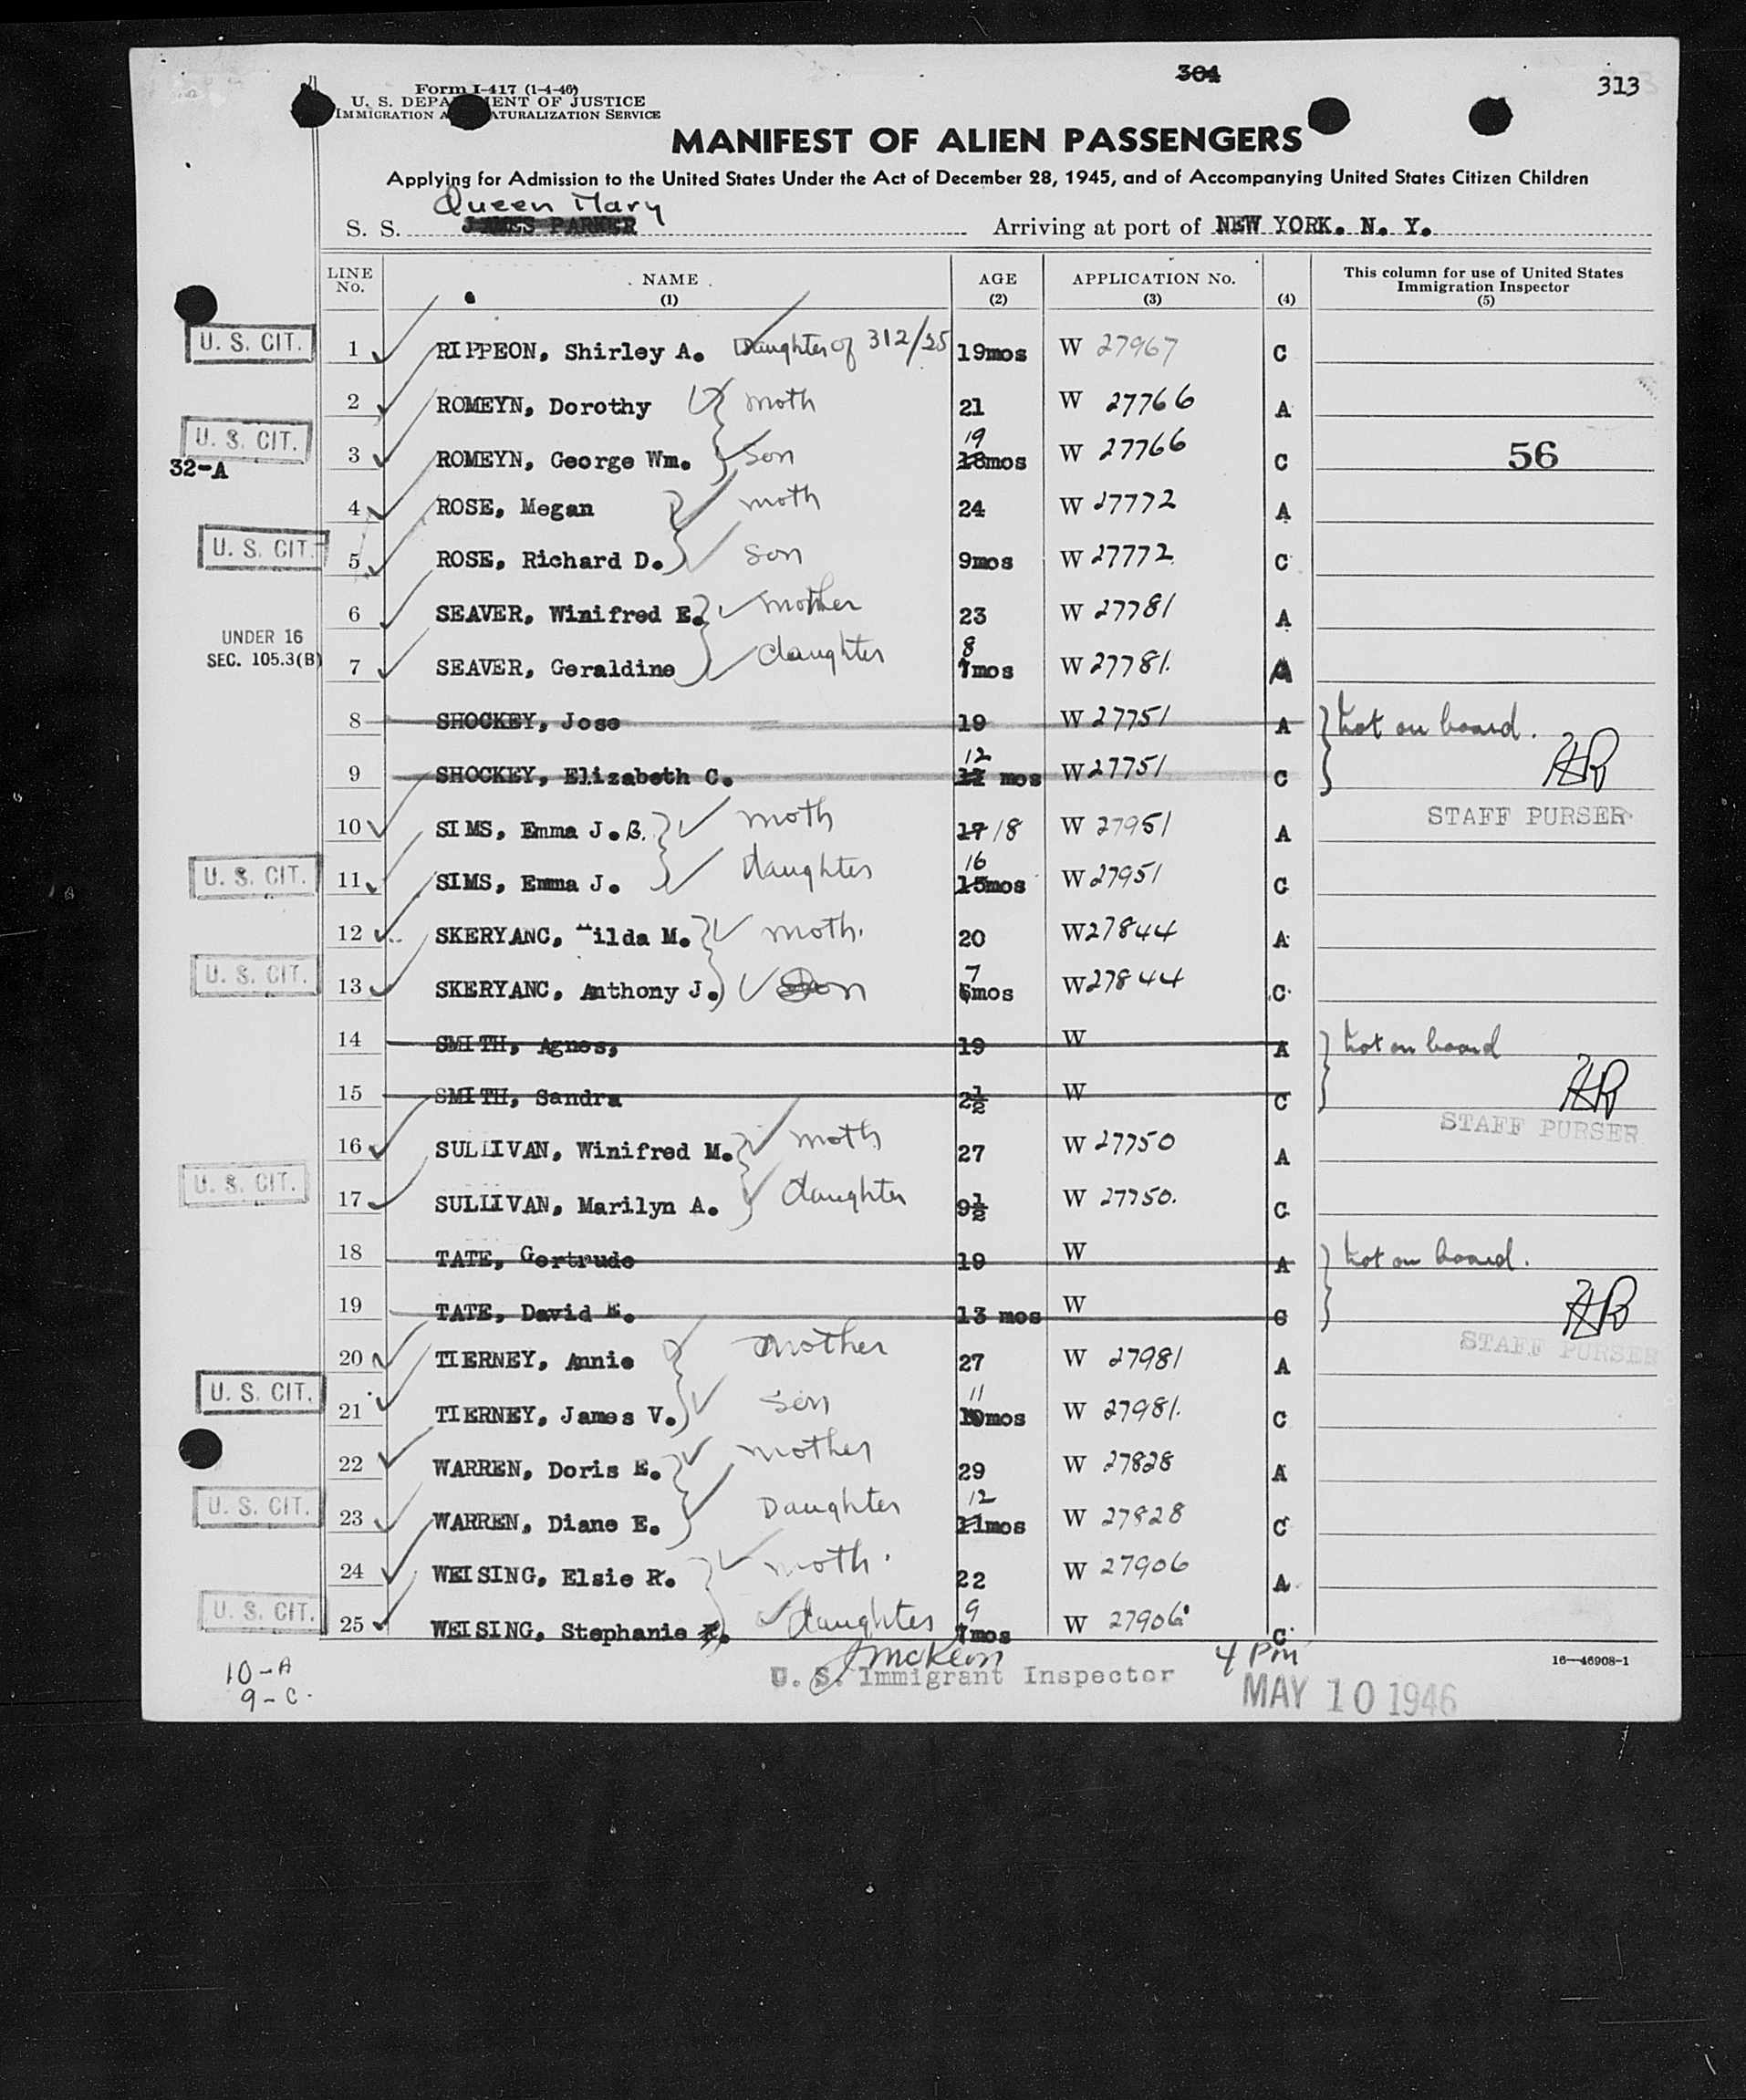 304
313
Form I-417 (1-4-46)
U. S. DEPA ENT OF JUSTICE
IMMIGRATION A ATURALIZATION SERVICE
MANIFEST OF ALIEN PASSENGERS
Applying for Admission to the United States Under the Act of December 28, 1945, and of Accompanying United States Citizen Children
Queen Mary
S. S. JAMES PARKER Arriving at port of NEW YORK. N. Y.
LINE No. NAME (1) AGE (2) APPLICATION No. (3) (4) This column for use of United States Immigration Inspector (5)
U. S. CIT. 1 RIPPEON, Shirley A. Daughter of 312/25 19mos W 27967 C
2 ROMEYN, Dorothy moth 21 W 27766 A
U. S. CIT. 3 ROMEYN, George Wm. son 19 18mos W 27766 C 56
32-A
4 ROSE, Megan moth 24 W 27772 A
U. S. CIT. 5 ROSE, Richard D. son 9mos W 27772 C
6 SEAVER, Winifred E. mother 23 W 27781 A
UNDER 16
SEC. 105.3(B) 7 SEAVER, Geraldine daughter 8 7mos W 27781. A
8 SHOCKEY, Jose 19 W 27751 A not on board.
9 SHOCKEY, Elizabeth C. 12 mos W 27751 C HR
STAFF PURSER
10 SIMS, Emma J. B. moth 17 18 W 27951 A
U. S. CIT. 11 SIMS, Emma J. daughter 16 15mos W 27951 C
12 SKERYANC, Hilda M. moth. 20 W 27844 A
U. S. CIT. 13 SKERYANC, Anthony J. Son 7 6mos W 27844 C
14 SMITH, Agnes, 19 W A not on board
15 SMITH, Sandra 2½ W C HR
STAFF PURSER
16 SULLIVAN, Winifred M. moth 27 W 27750 A
U. S. CIT. 17 SULLIVAN, Marilyn A. daughter 9½ W 27750. C
18 TATE, Gertrude 19 W A not on board.
19 TATE, David E. 13 mos W C HR
STAFF PURSER
20 TIERNEY, Annie mother 27 W 27981 A
U. S. CIT. 21 TIERNEY, James V. son 11 10mos W 27981. C
22 WARREN, Doris E. mother 29 W 27828 A
U. S. CIT. 23 WARREN, Diane E. Daughter 12 11mos W 27828 C
24 WEISING, Elsie R. moth. 22 W 27906 A
U. S. CIT. 25 WEISING, Stephanie daughter 9 7mos W 27906 C
J McKeon
10-A
9-C.
U. S. Immigrant Inspector
4 PM
MAY 10 1946
16—46908-1